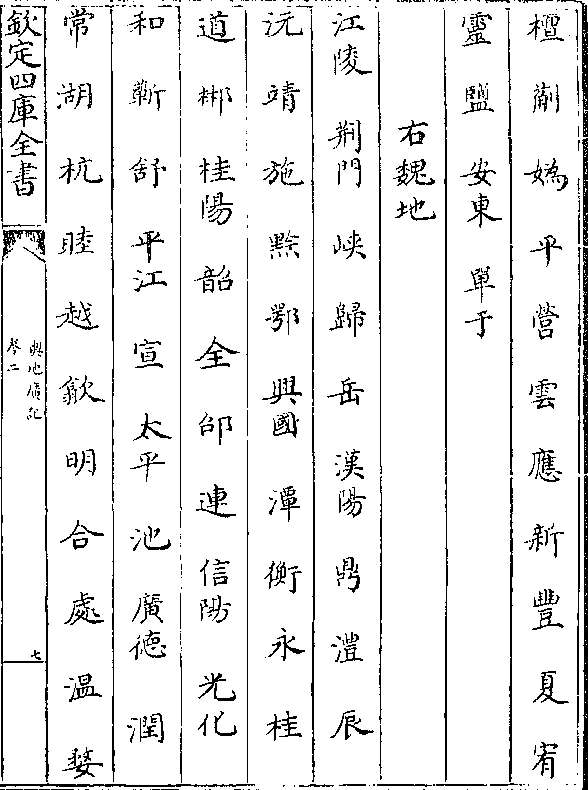 檀薊媯平營雲應新豐夏宥
靈鹽安東單于
右魏地
江陵荆門峡歸岳漢陽鼎澧辰
沅靖施黔鄂興國潭衡永桂
道郴桂陽韶全邵連信陽光化
和蘄舒平江宣太平池廣德潤
常湖杭睦越歙明合處溫婺
欽定四庫全書
輿地廣記
卷二
七